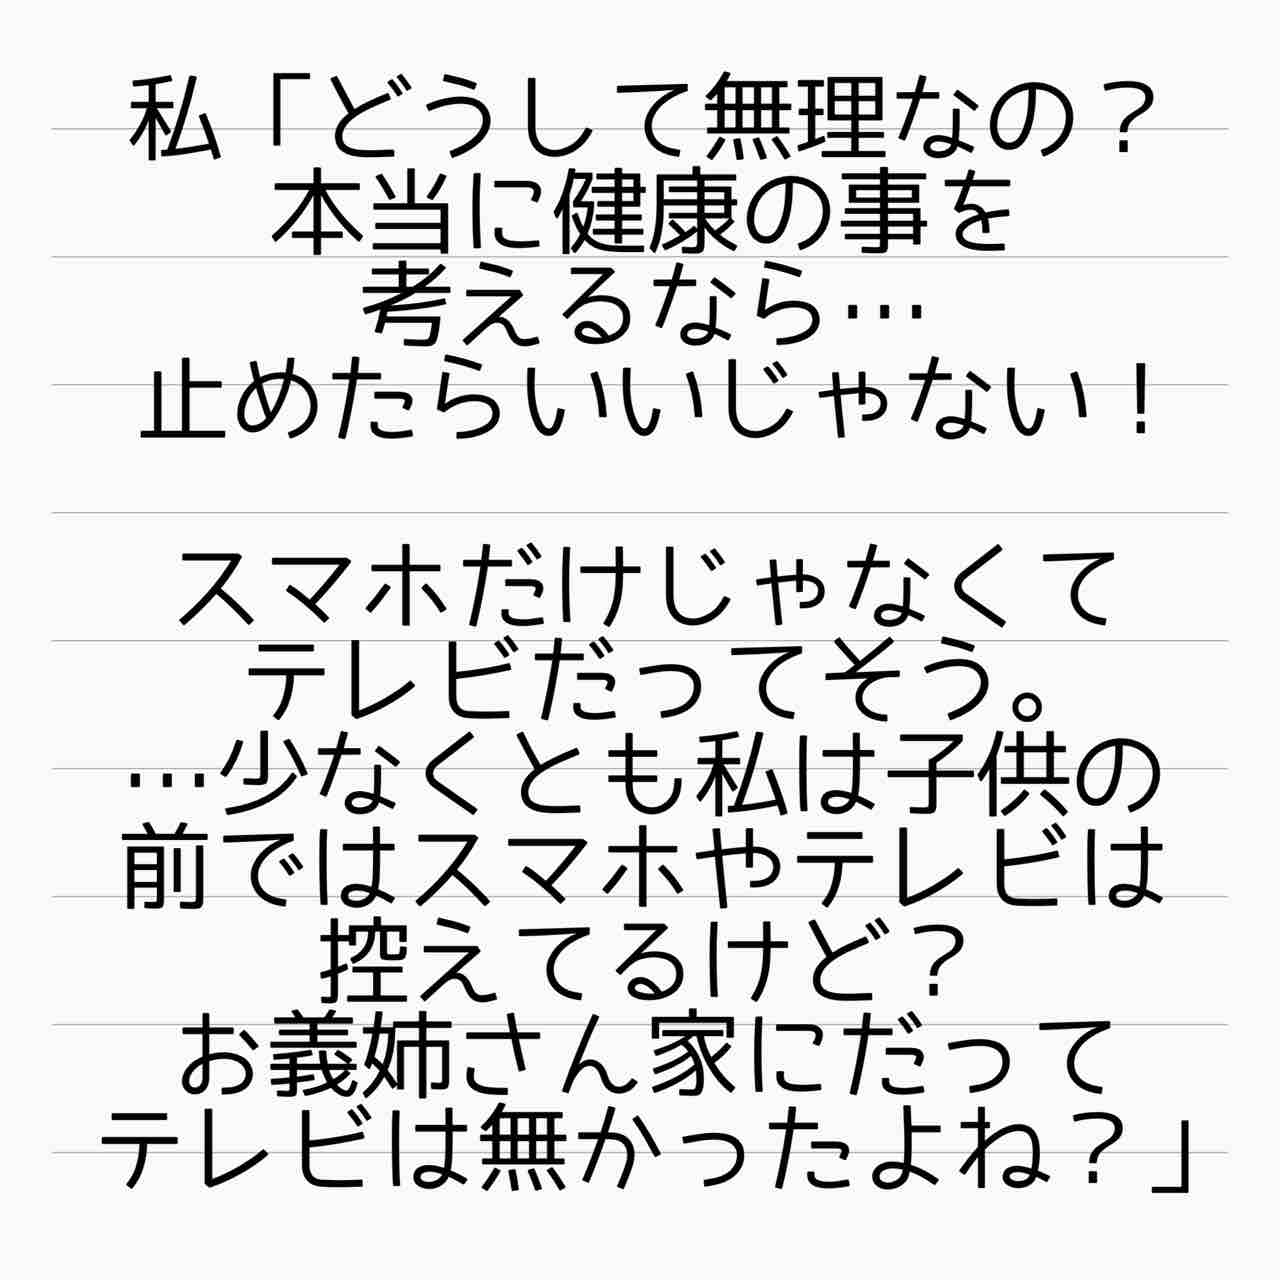 私「どうして無理なの？
本当に健康の事を
考えるなら…
止めたらいいじゃない！
スマホだけじゃなくて
テレビだってそう。
…少なくとも私は子供の
前ではスマホやテレビは
控えてるけど？
お義姉さん家にだって
テレビは無かったよね？」